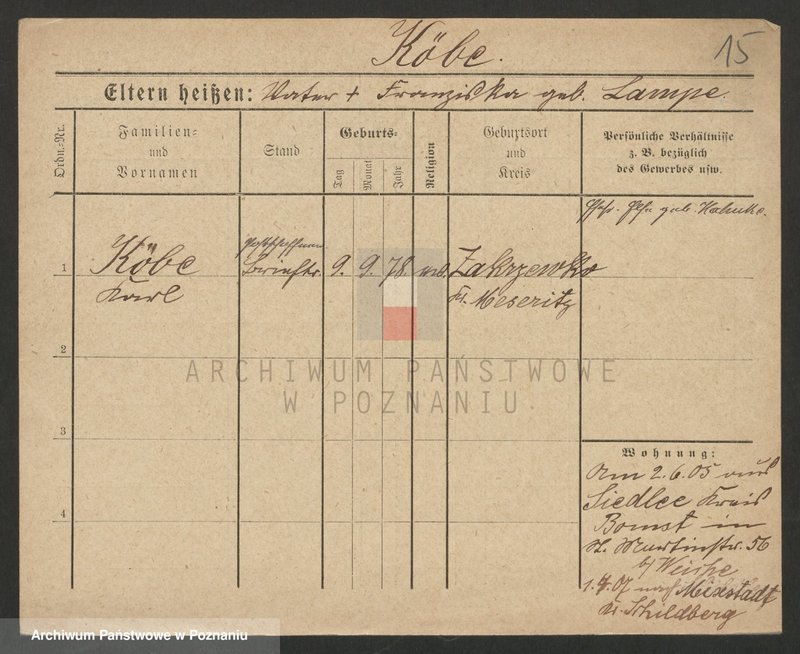 Köbe.
15
Eltern heißen: Vater + Franziska geb. Lampe.
Ordn.-Nr.
Familien-
und
Vornamen
Stand
Geburts-
Tag
Monat
Jahr
Religion
Geburtsort
und
Kreis
Persönliche Verhältnisse
z. B. bezüglich
des Gewerbes usw.
geb.
1
Köbe
Karl
Brieftr.
9. 9. 78.
Zakrzewko
Kr. Meseritz
2
ARCHIWUM PAŃSTWOWE
W POZNANIU
3
4
Wohnung:
Am 2.6.05 aus
Siedlec Kreis
Bomst in
St. Martinstr. 56
b/
1.4.07 nach Mixstadt
Kr. Schildberg
Archiwum Państwowe w Poznaniu